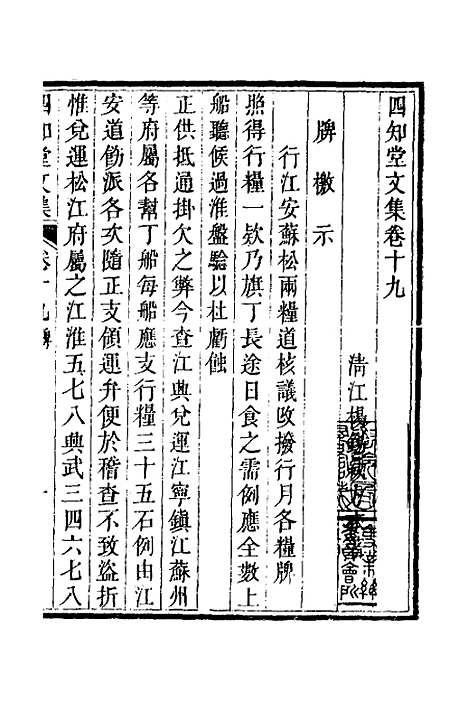 四知堂文集卷十九
清江楊
牌檄示
行江安蘇松兩糧道核議改撥行月各糧牌
照得行糧一欵乃旗丁長途日食之需例應全數上
船聽候過淮盤驗以杜虧蝕
正供抵通掛欠之弊今查江興兌運江寧鎮江蘇州
等府屬各幫丁船每船應支行糧三十五石例由江
安道飭派各次隨正支領運弁便於稽查不致盜折
惟兌運松江府屬之江淮五七八興武三四六七八
四知堂文集
卷十九牌
一